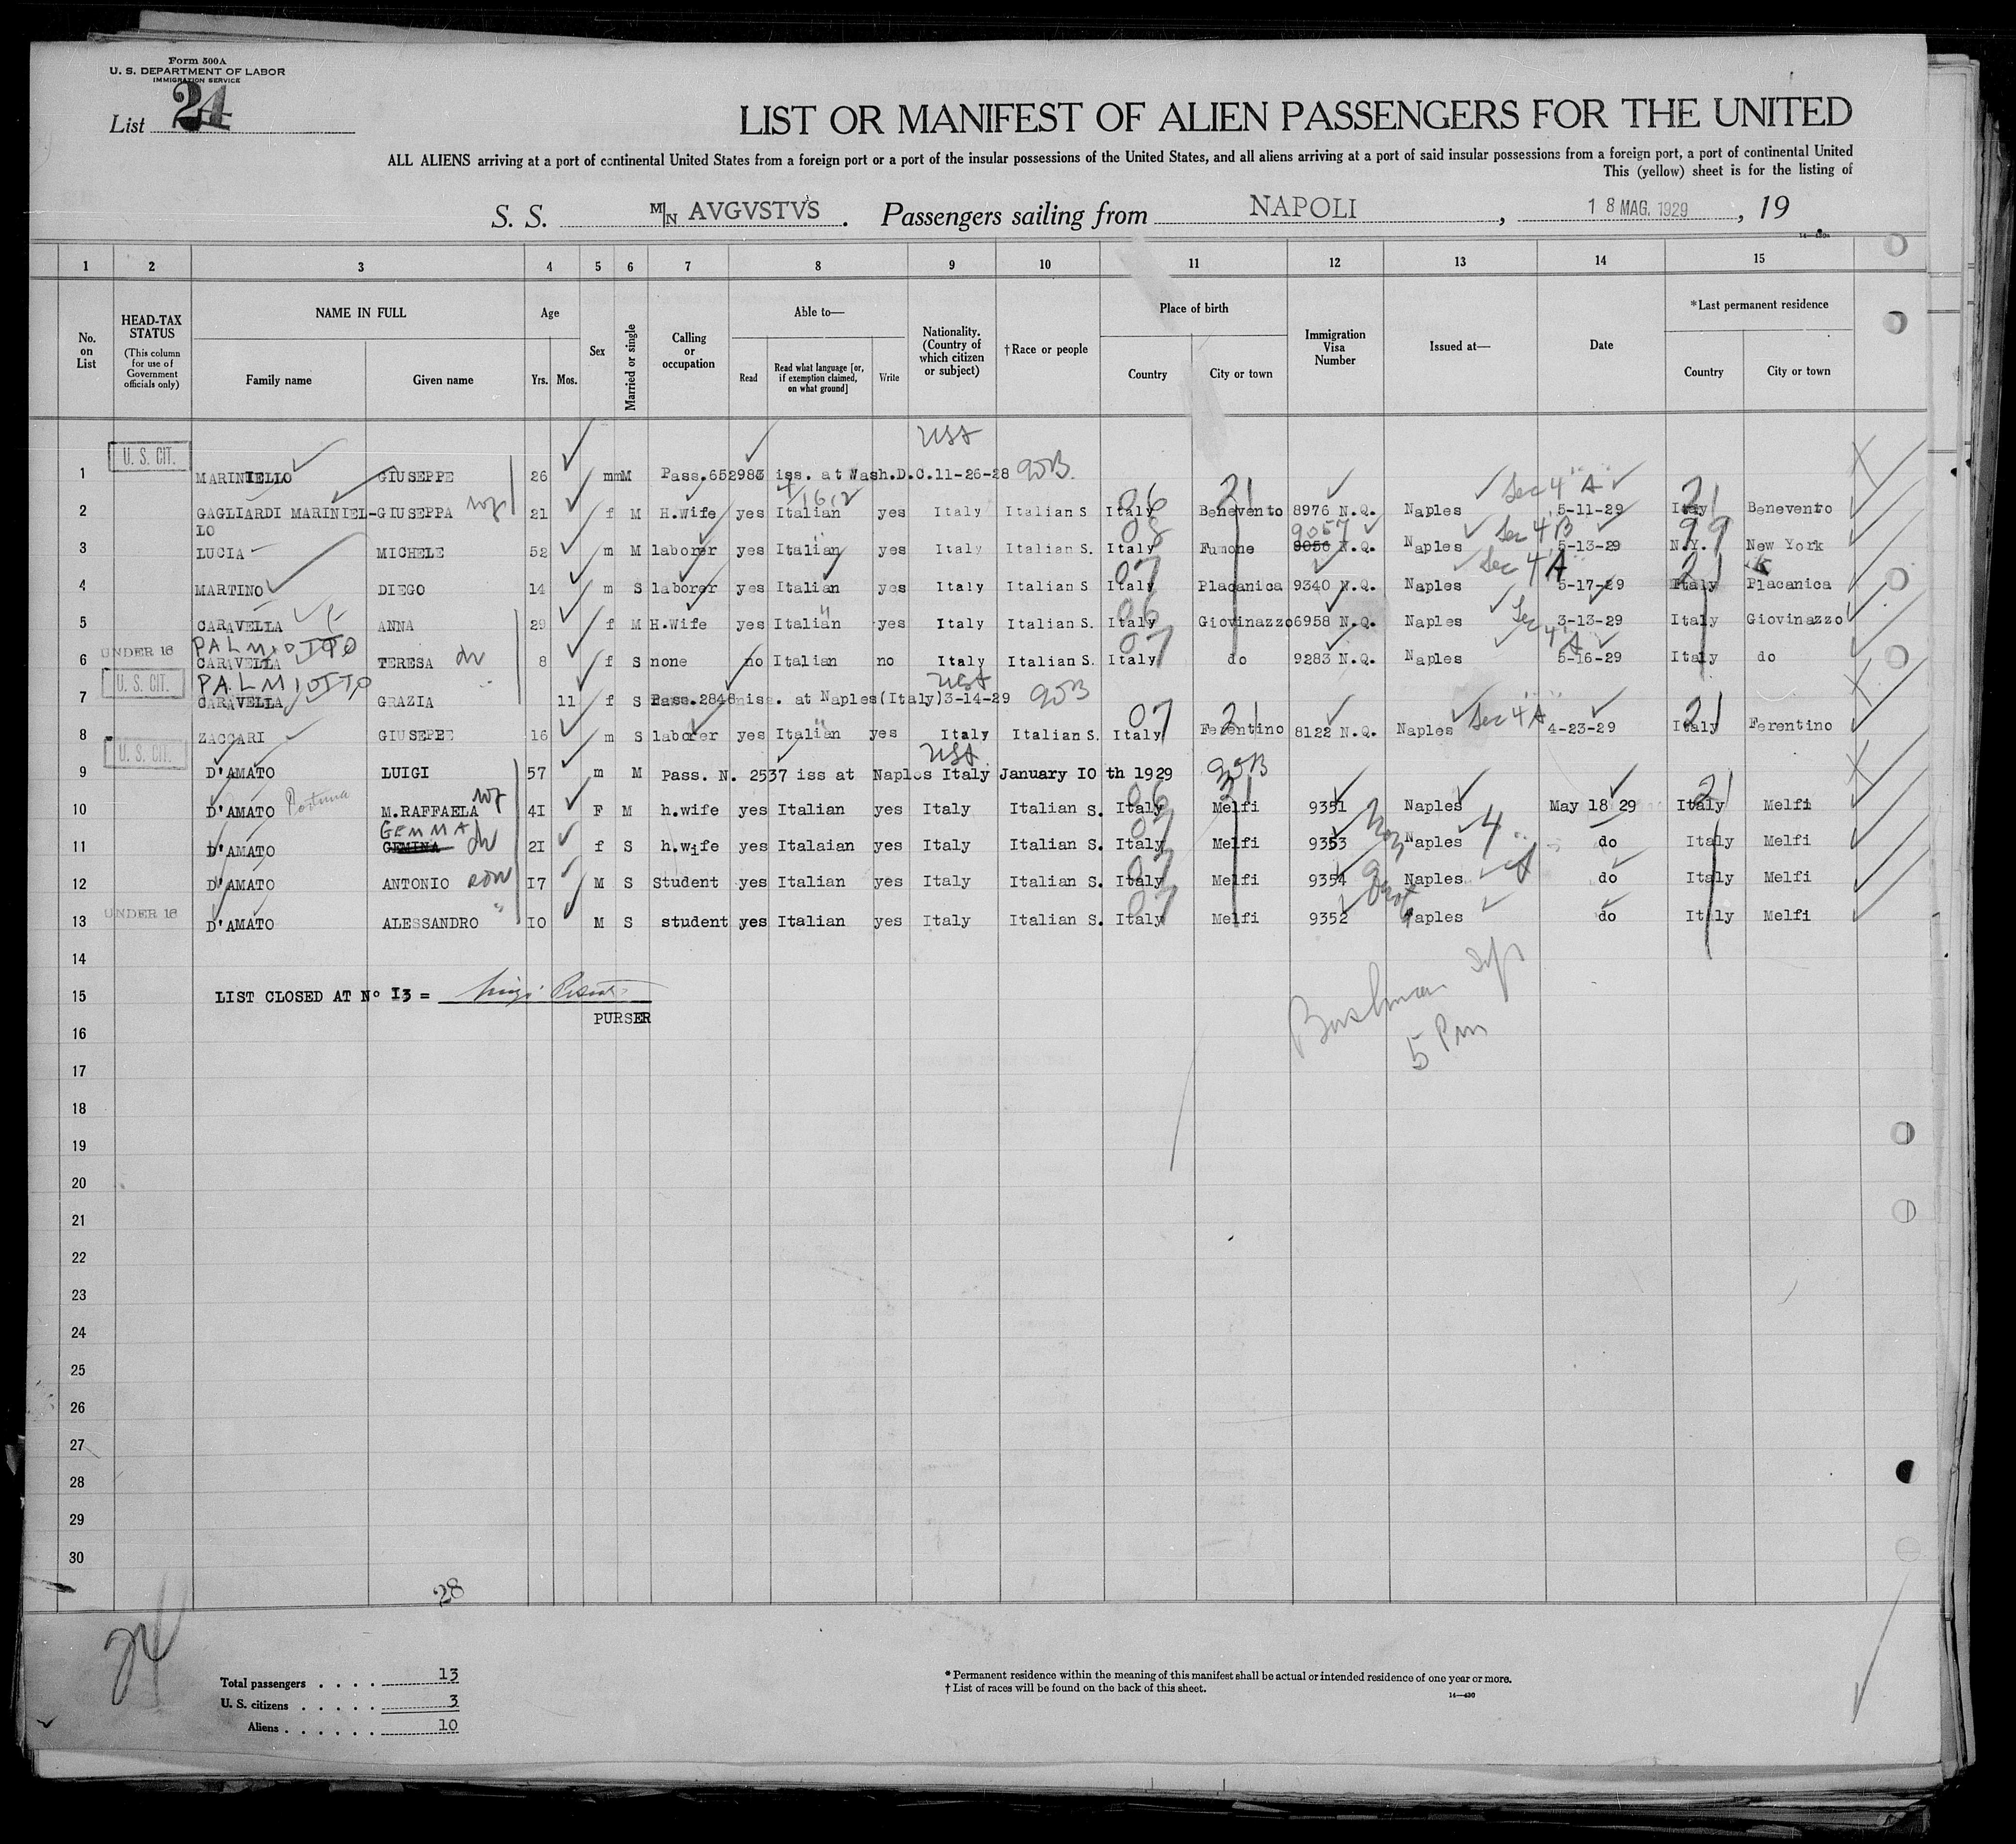 Form 500A
U. S. DEPARTMENT OF LABOR
IMMIGRATION SERVICE
List 24
LIST OR MANIFEST OF ALIEN PASSENGERS FOR THE UNITED
ALL ALIENS arriving at a port of continental United States from a foreign port or a port of the insular possessions of the United States, and all aliens arriving at a port of said insular possessions from a foreign port, a port of continental United
This (yellow) sheet is for the listing of
S. S. M/N AVGVSTVS. Passengers sailing from NAPOLI, 18 MAG. 1929, 19
14—430a
1 2 3 4 5 6 7 8 9 10 11 12 13 14 15
No. on List
HEAD-TAX STATUS
(This column for use of Government officials only)
NAME IN FULL
Family name Given name
Age
Yrs. Mos.
Sex
Married or single
Calling or occupation
Able to—
Read
Read what language [or, if exemption claimed, on what ground]
Write
Nationality. (Country of which citizen or subject)
†Race or people
Place of birth
Country City or town
Immigration Visa Number
Issued at—
Date
*Last permanent residence
Country City or town
USA
1 U. S. CIT. MARINIELLO GIUSEPPE 26 mm M Pass.652983 iss. at Wash.D.C.11-26-28 90B.
Sec 4 A
2 GAGLIARDI MARINIEL- GIUSEPPA wf 21 f M H.wife yes Italian yes Italy Italian S Italy 06 Benevento 21 8976 N.Q. Naples 5-11-29 Italy 21 Benevento
LO
9057 Sec 4 B
3 LUCIA MICHELE 52 m M laborer yes Italian yes Italy Italian S. Italy 08 Fumone 9056 N.Q. Naples 5-13-29 N.Y. 99 New York
Sec 4 A
4 MARTINO DIEGO 14 m S laborer yes Italian yes Italy Italian S. Italy 07 Placanica 9340 N.Q. Naples 5-17-29 Italy 21 Placanica
5 CARAVELLA ANNA 29 f M H.Wife yes Italian yes Italy Italian S. Italy 06 Giovinazzo 6958 N.Q. Naples 3-13-29 Italy Giovinazzo
PALMIOTTO Sec 4 A
6 UNDER 16 CARAVELLA TERESA 8 f S none no Italian no Italy Italian S. Italy 07 do 9283 N.Q. Naples 5-16-29 Italy do
PALMIOTTO USA
7 U. S. CIT. CARAVELLA GRAZIA 11 f S Pass.2848 iss. at Naples(Italy)3-14-29 90B
Sec 4 A
8 ZACCARI GIUSEPPE 16 m S laborer yes Italian yes Italy Italian S. Italy 07 Ferentino 21 8122 N.Q. Naples 4-23-29 Italy 21 Ferentino
USA
9 U. S. CIT. D'AMATO LUIGI 57 m M Pass. N. 2537 iss at Naples Italy January IO th 1929 90B
10 D'AMATO M.RAFFAELA wf 4I F M h.wife yes Italian yes Italy Italian S. Italy 06 Melfi 21 9351 Naples May 18 29 Italy 21 Melfi
GEMMA
11 D'AMATO GEMINA 2I f S h.wife yes Italaian yes Italy Italian S. Italy 07 Melfi 9353 Naples 4 do Italy Melfi
12 D'AMATO ANTONIO son I7 M S Student yes Italian yes Italy Italian S. Italy 07 Melfi 9354 Naples A do Italy Melfi
13 UNDER 16 D'AMATO ALESSANDRO " IO M S student yes Italian yes Italy Italian S. Italy 07 Melfi 9352 Naples do Italy Melfi
14
15 LIST CLOSED AT No I3 =
PURSER
5 Pm
16
17
18
19
20
21
22
23
24
25
26
27
28
29
30
28
24
Total passengers . . . . 13
U. S. citizens . . . . . 3
Aliens . . . . . . 10
* Permanent residence within the meaning of this manifest shall be actual or intended residence of one year or more.
† List of races will be found on the back of this sheet.
14—430